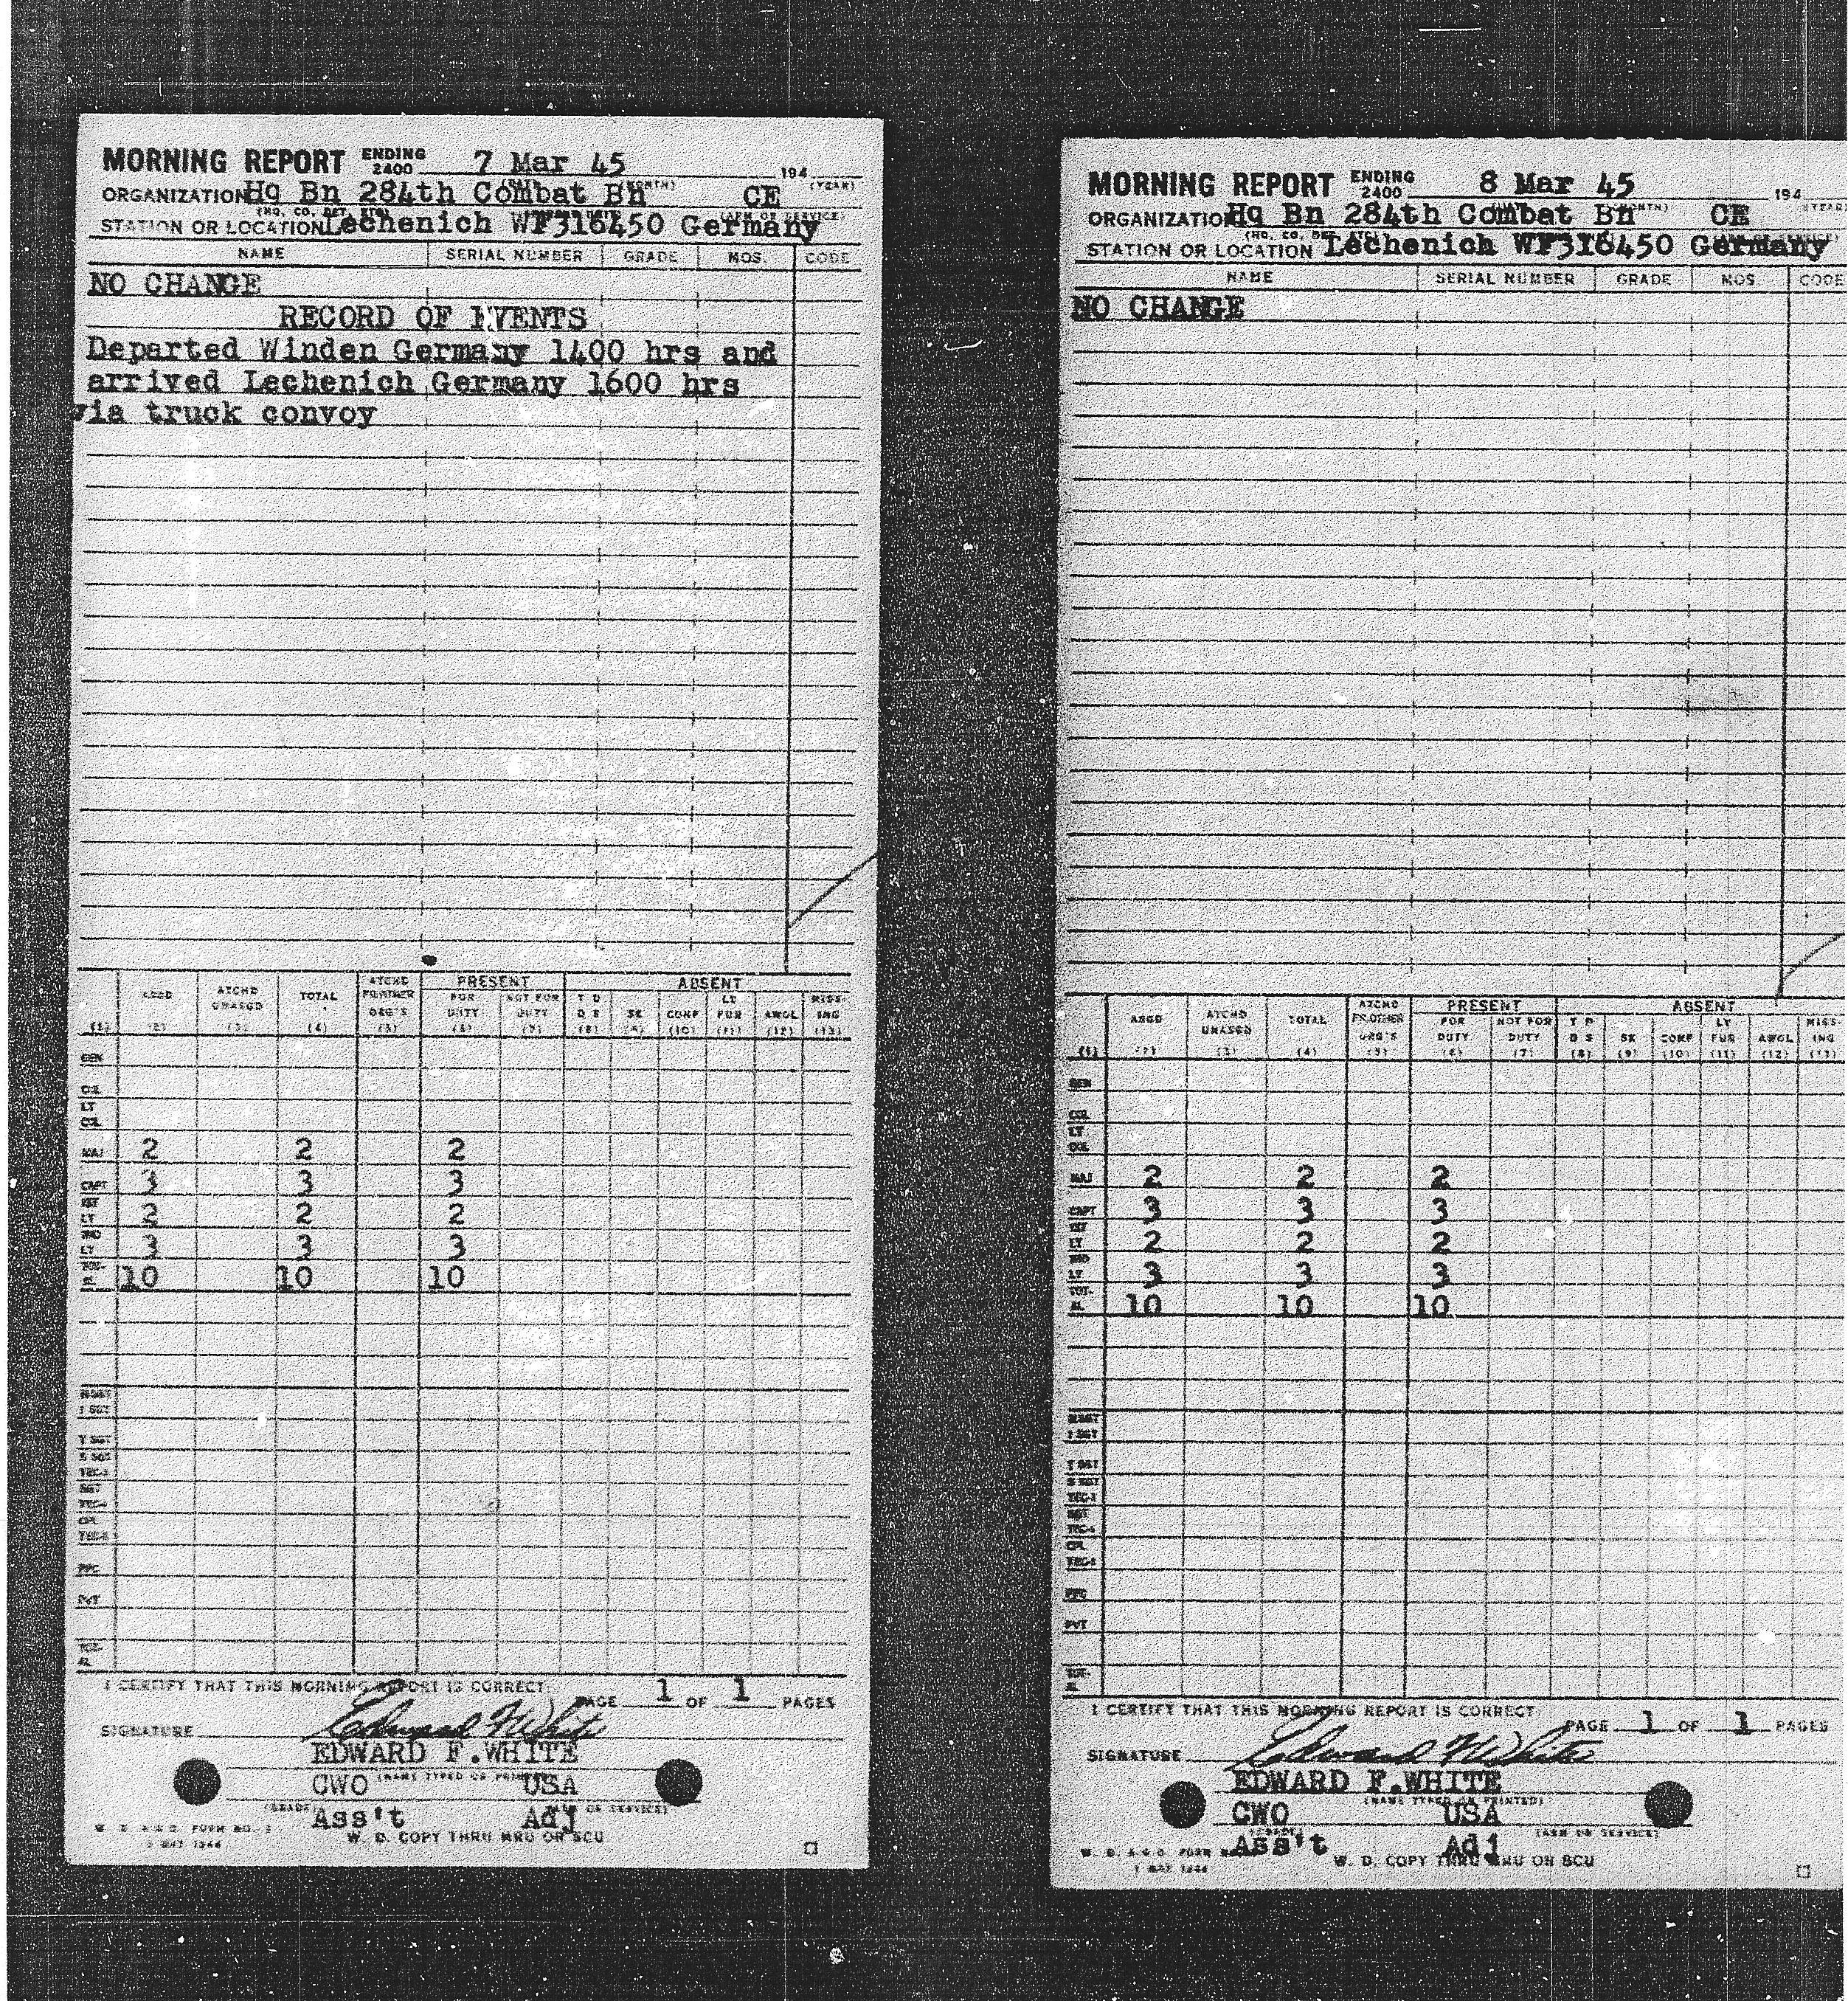 MORNING REPORT ENDING 2400 7 Mar 45 194
ORGANIZATION Hq Bn 284th Combat Bn CE
STATION OR LOCATION Lechenich WF316450 Germany
NAME SERIAL NUMBER GRADE MOS CODE
NO CHANGE
RECORD OF EVENTS
Departed Winden Germany 1400 hrs and
arrived Lechenich Germany 1600 hrs
via truck convoy
PRESENT ABSENT
ASGD ATCHD UNASGD TOTAL ATCHD FR OTHER ORG'S FOR DUTY NOT FOR DUTY T D D S SK CONF LV FUR AWOL MISS- ING
(1) (2) (3) (4) (5) (6) (7) (8) (9) (10) (11) (12) (13)
GEN
COL
LT COL
MAJ 2 2 2
CAPT 3 3 3
1ST LT 2 2 2
2ND LT 3 3 3
TOT- AL 10 10 10
M SGT
1 SGT
T SGT
S SGT
TEC-3
SGT
TEC-4
CPL
TEC-5
PFC
PVT
TOT- AL
I CERTIFY THAT THIS MORNING REPORT IS CORRECT.
PAGE 1 OF 1 PAGES
SIGNATURE Edward F White
EDWARD F. WHITE
(NAME TYPED OR PRINTED)
CWO USA
(GRADE) (ARM OR SERVICE)
Ass't Adj
W. D. A. G. O. FORM NO. 1
1 MAY 1944
W. D. COPY THRU MRU OR SCU
MORNING REPORT ENDING 2400 8 Mar 45 194
ORGANIZATION Hq Bn 284th Combat Bn CE
STATION OR LOCATION Lechenich WF316450 Germany
NAME SERIAL NUMBER GRADE MOS CODE
NO CHANGE
PRESENT ABSENT
ASGD ATCHD UNASGD TOTAL ATCHD FR OTHER ORG'S FOR DUTY NOT FOR DUTY T D D S SK CONF LV FUR AWOL MISS- ING
(1) (2) (3) (4) (5) (6) (7) (8) (9) (10) (11) (12) (13)
GEN
COL
LT COL
MAJ 2 2 2
CAPT 3 3 3
1ST LT 2 2 2
2ND LT 3 3 3
TOT- AL 10 10 10
M SGT
1 SGT
T SGT
S SGT
TEC-3
SGT
TEC-4
CPL
TEC-5
PFC
PVT
TOT- AL
I CERTIFY THAT THIS MORNING REPORT IS CORRECT.
PAGE 1 OF 1 PAGES
SIGNATURE Edward F White
EDWARD F. WHITE
(NAME TYPED OR PRINTED)
CWO USA
(GRADE) (ARM OR SERVICE)
Ass't Adj
W. D. A. G. O. FORM NO.
1 MAY 1944
W. D. COPY THRU MRU OR SCU